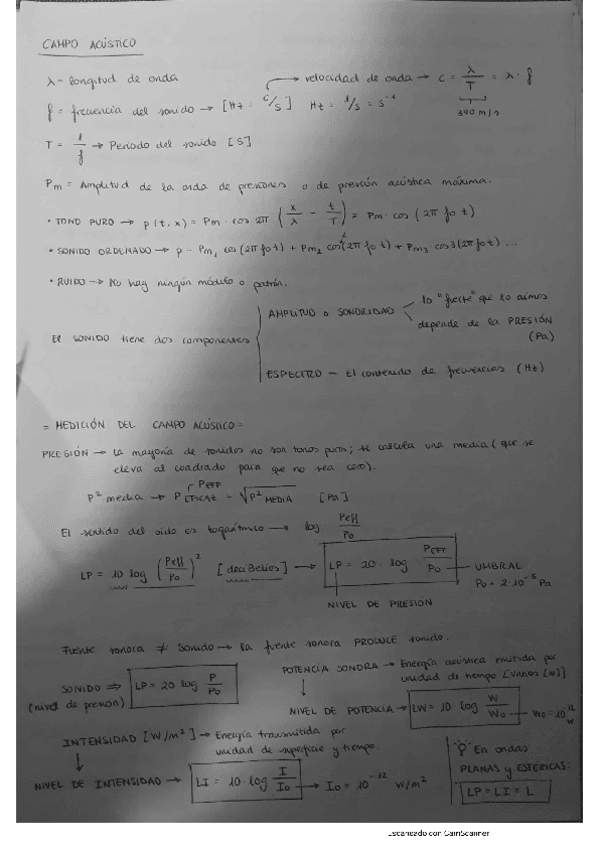 CAMPO ACÚSTICO
λ - longitud de onda
velocidad de onda → c = λ/T = λ · f
f = frecuencia del sonido → [Hz = c/s] Hz = 1/s = s⁻¹
340 m/s
T = 1/f → Periodo del sonido [s]
Pm = Amplitud de la onda de presiones o de presión acústica máxima.
• TONO PURO → p(t,x) = Pm · cos 2π (x/λ - t/T) = Pm · cos (2π fo t)
• SONIDO ORDENADO → p - Pm₁ cos(2π fo t) + Pm₂ cos 2(2π fo t) + Pm₃ cos 3(2π fo t) ...
• RUIDO → No hay ningún módulo o patrón.
El SONIDO tiene dos componentes
AMPLITUD o SONORIDAD
lo "fuerte" que lo oímos
depende de la PRESIÓN
(Pa)
ESPECTRO - El contenido de frecuencias (Hz)
= MEDICIÓN DEL CAMPO ACÚSTICO =
PRESIÓN → La mayoría de sonidos no son tonos puros; se calcula una media (que se
eleva al cuadrado para que no sea cero).
PEFF
P² media → P EFICAZ = √P² MEDIA [Pa]
El sentido del oído es logarítmico → log Peff/Po
LP = 10 log (Peff/Po)² [decibelios] → LP = 20 · log PEFF/Po — UMBRAL
Po = 2·10⁻⁵ Pa
NIVEL DE PRESIÓN
Fuente sonora ≠ Sonido → la fuente sonora PRODUCE sonido.
SONIDO ⇒ LP = 20 log P/Po
(nivel de presión)
POTENCIA SONORA → Energía acústica emitida por
unidad de tiempo [Vatios [W]]
NIVEL DE POTENCIA → LW = 10 · log W/Wo — Wo = 10⁻¹² W
INTENSIDAD [W/m²] → Energía transmitida por
unidad de superficie y tiempo.
NIVEL DE INTENSIDAD → LI = 10 · log I/Io → Io = 10⁻¹² W/m²
En ondas
PLANAS y ESFÉRICAS:
LP = LI = L
Escaneado con CamScanner